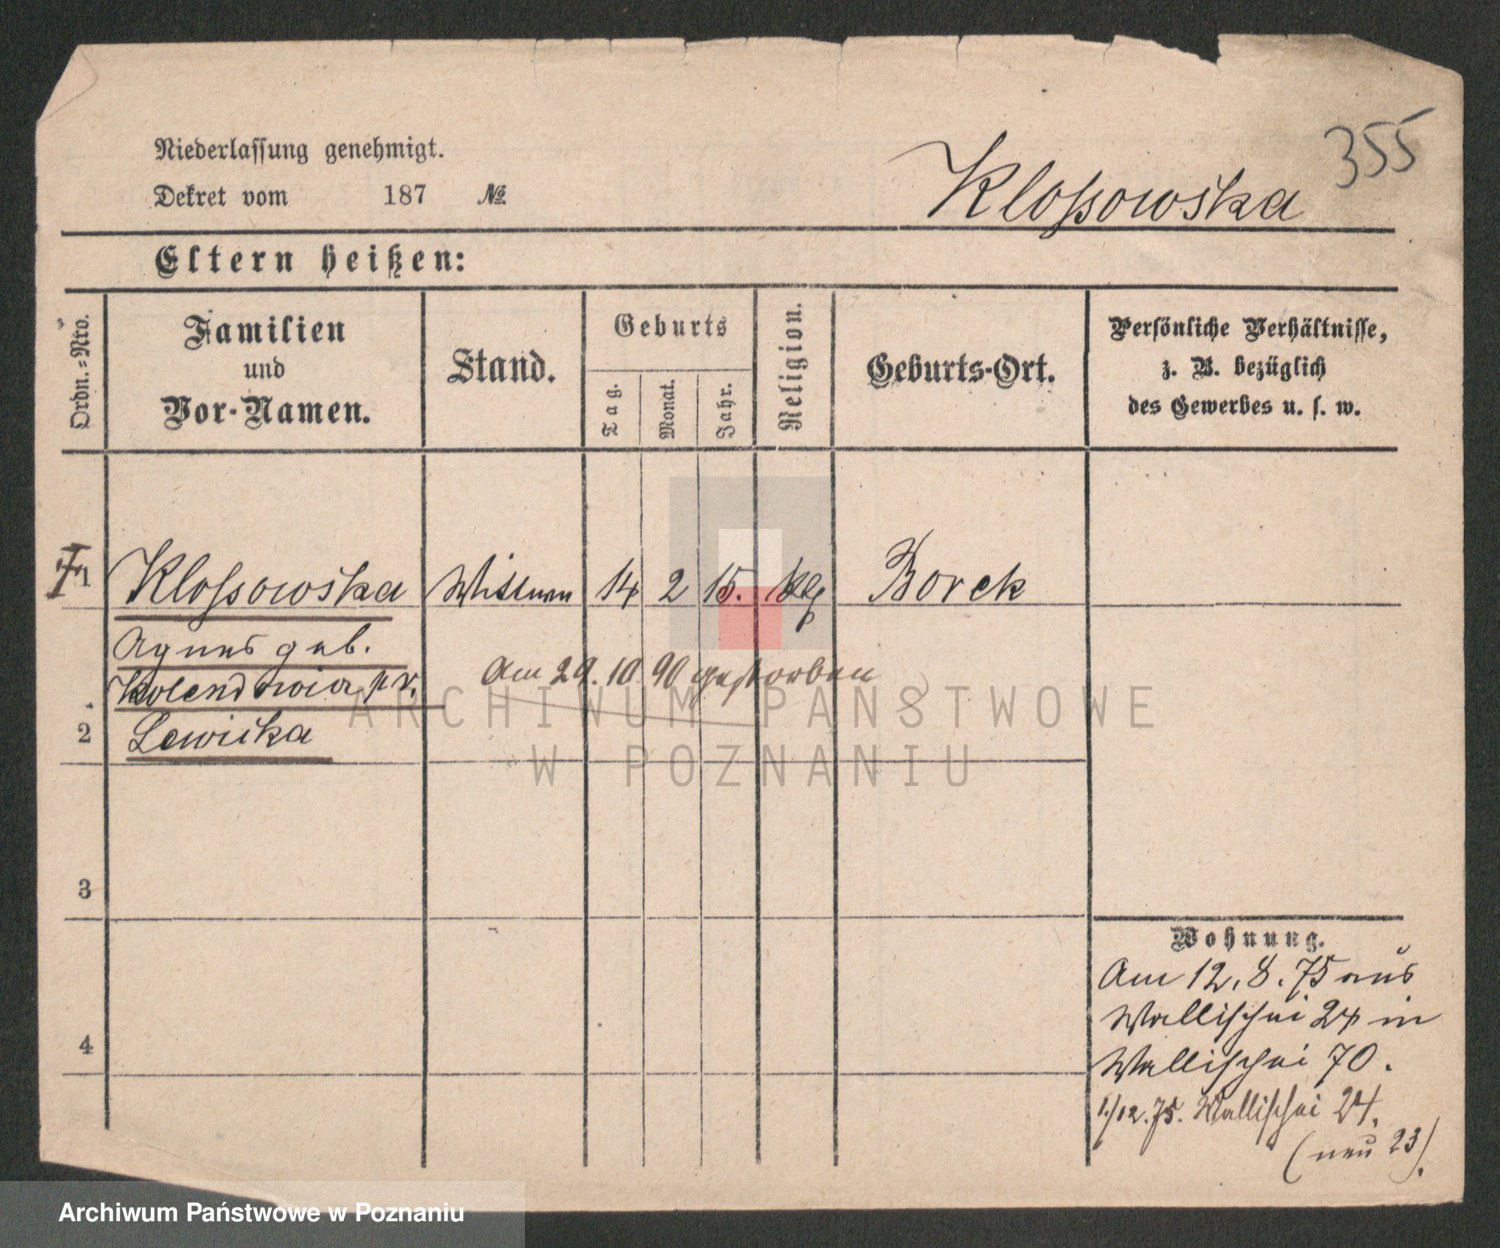 355
Niederlassung genehmigt.
Dekret vom 187 №
Klossowska
Eltern heißen:
Ordn.-Nro.
Familien und Vor-Namen.
Stand.
Geburts
Tag.
Monat.
Jahr.
Religion.
Geburts-Ort.
Persönliche Verhältnisse,
z. B. bezüglich
des Gewerbes u. s. w.
1 Klossowska Wittwe 14 2 15. Borek
Agnes geb.
Am 29. 10 90 gestorben
2 Lewicka
3
4
Wohnung.
Am 12. 8. 75 aus
Wallischei 24 in
Wallischei 70.
1/12. 75. Wallischei 24.
(neu 23).
ARCHIWUM PAŃSTWOWE
W POZNANIU
Archiwum Państwowe w Poznaniu